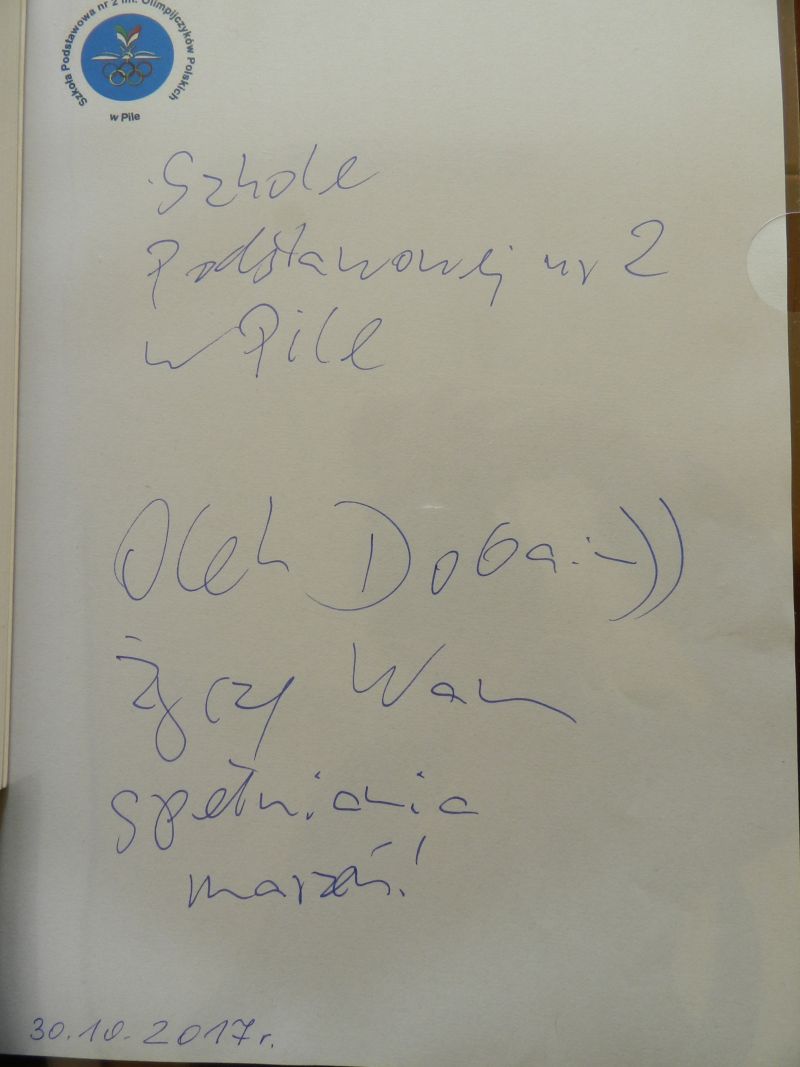 Szkoła Podstawowa nr 2 im. Olimpijczyków Polskich
w Pile
Szkole
Podstawowej nr 2
w Pile
Olek Doba :-))
życzy Wam
spełniania
marzeń!
30.10.2017r.